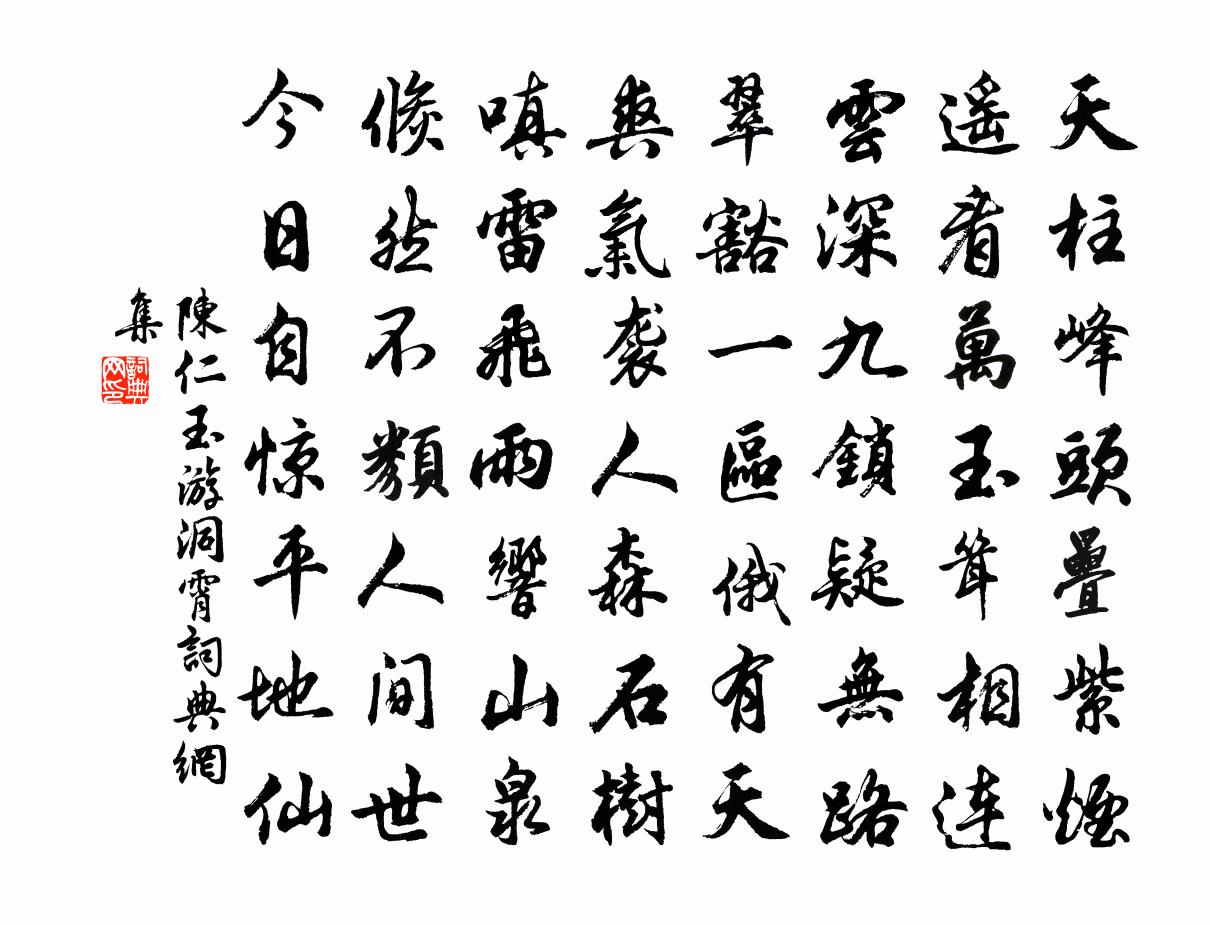 天柱峰頭疊紫煙
遥看萬玉聳相連
雲深九鎖疑無路
翠豁一區俄有天
爽氣襲人森石樹
嗔雷飛雨響山泉
倏然不類人间世
今日自惊平地仙
陳仁玉游洞霄詞典網
集
詞典网印